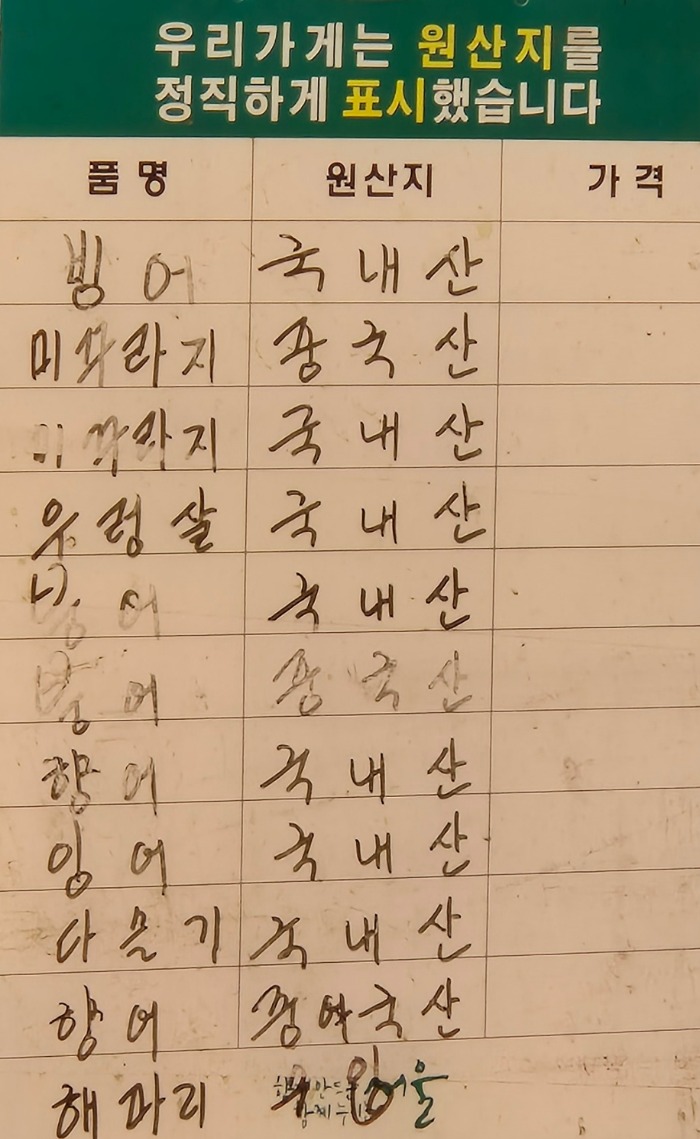 우리가게는 원산지를
정직하게 표시했습니다
품명 원산지 가격
빙어 국내산
미꾸라지 중국산
미꾸라지 국내산
우렁살 국내산
어 국내산
어 중국산
향어 국내산
잉어 국내산
다슬기 국내산
향어 국산
해파리